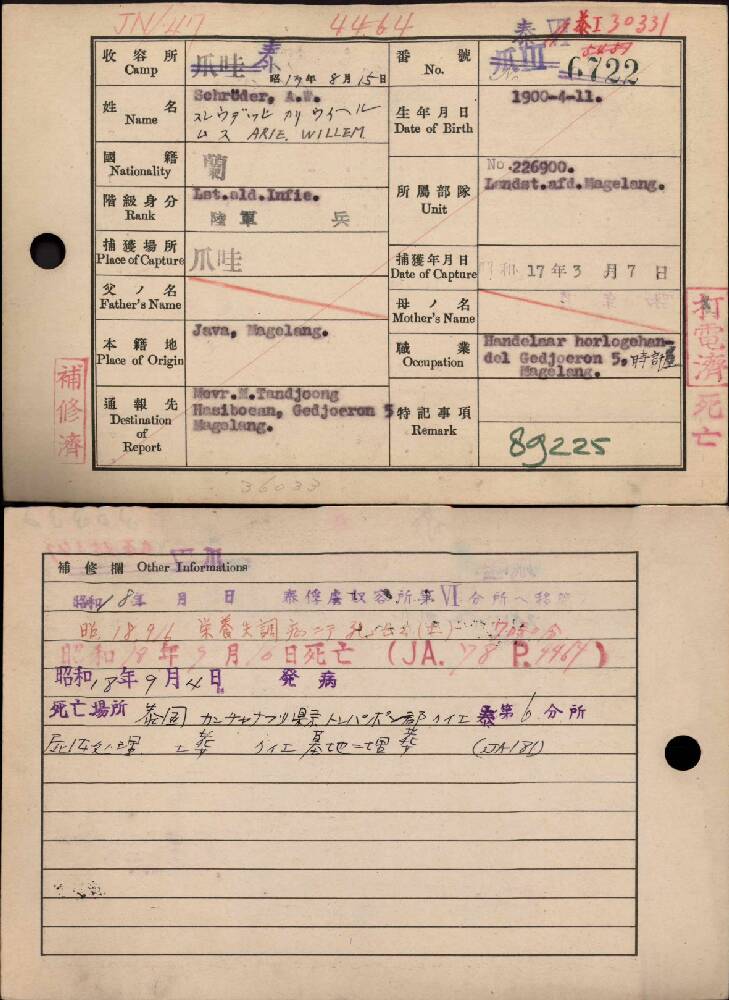 JN/417 4464 泰VI 泰I 30331
收容所 Camp 爪哇 泰 昭17年8月15日 番號 No. 爪III 6722
姓名 Name Schröder, A.W. 生年月日 Date of Birth 1900-4-11.
ARIE. WILLEM
國籍 Nationality 蘭
階級身分 Rank Lst.ald.Infie. 陸軍 兵 所屬部隊 Unit No.226900. Landst.afd.Magelang.
捕獲場所 Place of Capture 爪哇 捕獲年月日 Date of Capture 昭和17年3月7日
父ノ名 Father's Name 母ノ名 Mother's Name
本籍地 Place of Origin Java, Magelang. 職業 Occupation Handelaar horlogehan-
del Gedjoeron 5,
Magelang.
通報先 Destination of Report Mevr.M.Tandjoong
Hasiboean, Gedjoeron 5
Magelang.
特記事項 Remark 89225
補修濟
打電濟 死亡
36033
補修欄 Other Informations
昭和18年 月 日 泰俘虜收容所第VI分所ヘ移
昭18.9/6 栄養失調
昭和18年9月10日死亡 (JA.78 P.4464)
昭和18年9月4日 発病
死亡場所 泰国 第6分所
土葬 墓地ニ埋葬 (JA181)